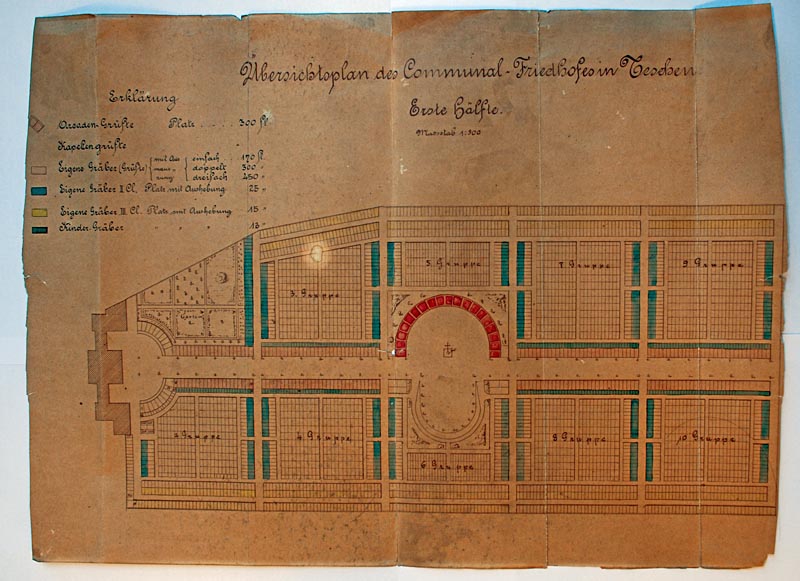 Übersichtsplan des Communal-Friedhofes in Teschen.
Erste Hälfte.
Massstab 1:300
Erklärung
Arcaden-Grüfte Platz . . . . 300 fl.
Kapelengrüfte
Eigene Gräber (Grüfte) mit Aus einfach . . . 170 fl.
mau doppelt 300 "
rung dreifach 450 "
Eigene Gräber II Cl. Platz mit Aushebung 25 "
Eigene Gräber III Cl. Platz mit Aushebung 15 "
Kinder Gräber " " " 13 "
3. Gruppe
5. Gruppe
7. Gruppe
9. Gruppe
Garten
2. Gruppe
4. Gruppe
6 Gruppe
8 Gruppe
10 Gruppe